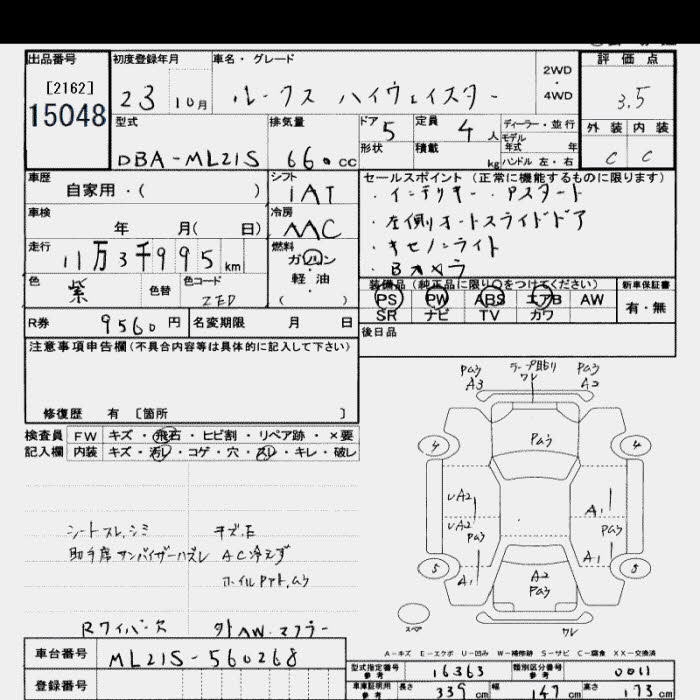 出品番号 初度登録年月 車名・グレード 評価点
[2162]
15048
23 10月 ルークス ハイウェイスター 2WD・4WD 3.5
型式 排気量 ドア 5 定員 4人 ディーラー・並行 外装 内装
モデル年式 年
DBA-ML21S 660cc 形状 積載 kg ハンドル 左・右 C C
車歴 シフト セールスポイント (正常に機能するものに限ります)
自家用・( ) IAT ・インテリキー・Pスタート
車検 冷房 ・左側オートスライドドア
年 月( 日) AAC ・キセノンライト
走行 燃料 ・Bカメラ
11万3千995km ガソリン
軽油
( )
色 色替 色コード 装備品 (純正品に限り○をつけてください) 新車保証書
紫 ZED PS PW ABS エアB AW 有・無
SR ナビ TV カワ
R券 9560円 名変期限 月 日 後日品
注意事項申告欄(不具合内容等は具体的に記入して下さい)
修復歴 有 〔箇所 〕
検査員 FW キズ・飛石・ヒビ割・リペア跡・×要
記入欄 内装 キズ・汚レ・コゲ・穴・スレ・キレ・破レ
Paク A3 ワレ Paク A2
Paク
4 4
A2 A1
A2 Paク Paク
A1 A1
5 5
A2
Paク
スペア ワレ
シートスレ,シミ キズ,E
助手席サンバイザーハズレ AC冷えず
Rワイパー欠 外AW.マフラー
A-キズ E-エクボ U-凹み W-補修跡 S-サビ C-腐食 XX-交換済
車台番号 ML21S-560268
登録番号
型式指定番号 参考 16363 類別区分番号 参考 0011
車庫証明用 参考 長さ 339cm 幅 147cm 高さ 173cm